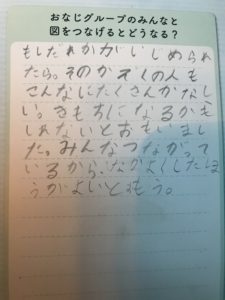 おなじグループのみんなと
図をつなげるとどうなる？
もしだれかがいじめられ
たら。そのかぞくの人も
こんなにたくさんかなし
い。きもちになるかも
しれないとおもいまし
た。みんなつながって
いるから、なかよくしたほ
うがよいともう。